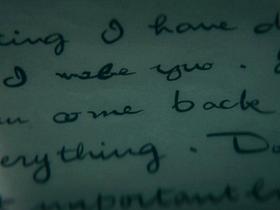 king I have d
I make you.
can come back
everything. Do
important